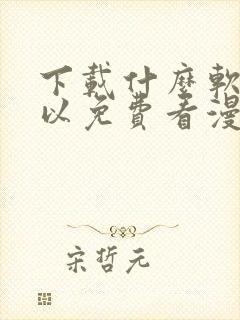 下載什麼軟
以免費看漫
宋哲元